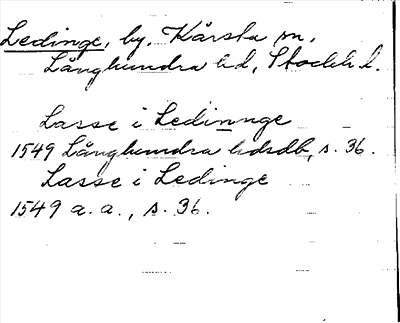 Ledinge, by, Kårsta sn,
Långhundra hd, Stockh. l.
Lasse i Ledinnge
1549 Långhundra hdsdb, s. 36.
Lasse i Ledinge
1549 a. a., s. 36.